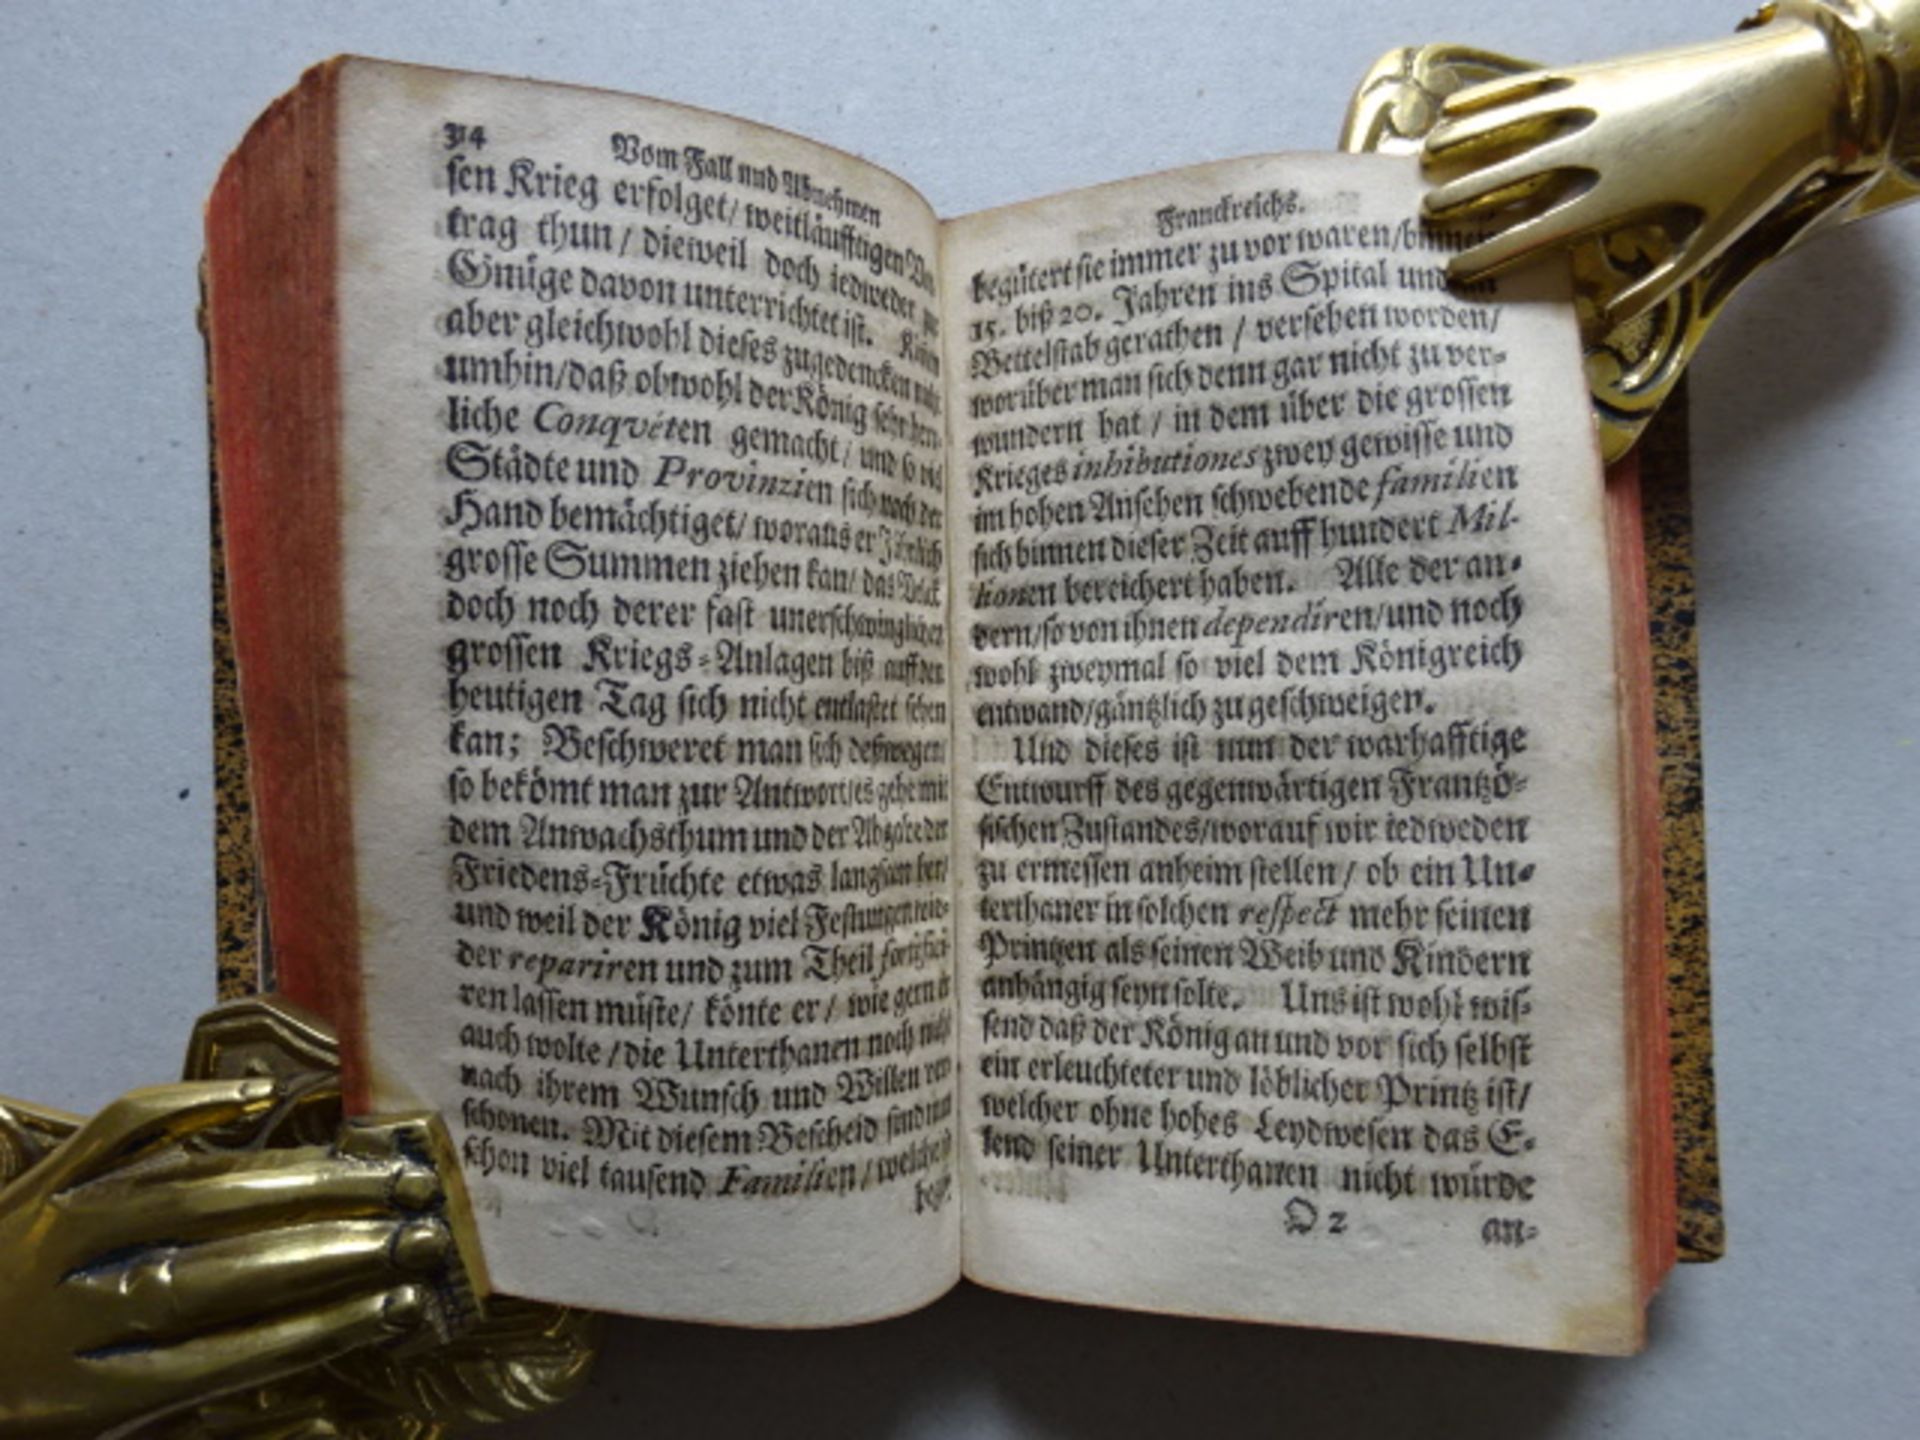 Vom Fall und Abnehmen
sen Krieg erfolget/ weitläufftigen
trag thun / dieweil doch iedweder zur
Gnüge davon unterrichtet ist. Können
aber gleichwohl dieses zugedencken nicht
umhin/daß obwohl der König sehr herr-
liche Conqvéten gemacht/ und so viel
Städte und Provinzien sich nach der
Hand bemächtiget/ woraus er Jährlich
grosse Summen ziehen kan/ das Volck
doch noch derer fast unerschwinglichen
grossen Kriegs-Anlagen biß auff den
heutigen Tag sich nicht entlastet sehen
kan; Beschweret man sich deßwegen/
so bekömt man zur Antwort/es gehe mit
dem Anwachsthum und der Abgabe der
Friedens-Früchte etwas langsam her/
und weil der König viel Festungen wie-
der repariren und zum Theil fortifici-
ren lassen müste/ könte er/ wie gern er
auch wolte / die Unterthanen noch nicht
nach ihrem Wunsch und Willen ver-
schonen. Mit diesem Bescheid sind nun
schon viel tausend Familien / welche so
begü-
Franckreichs.
begütert sie immer zu vor waren/binnen
15. biß 20. Jahren ins Spital und an
Bettelstab gerathen / versehen worden/
worüber man sich denn gar nicht zu ver-
wundern hat / in dem über die grossen
Krieges inhibutiones zwey gewisse und
im hohen Ansehen schwebende familien
sich binnen dieser Zeit auff hundert Mil-
lionen bereichert haben. Alle der an-
dern/so von ihnen dependiren/und noch
wohl zweymal so viel dem Königreich
entwand/gäntzlich zu geschweigen.
Und dieses ist nun der warhafftige
Entwurff des gegenwärtigen Frantzö-
sischen Zustandes/worauf wir iedweden
zu ermessen anheim stellen / ob ein Un-
terthaner in solchen respect mehr seinen
Printzen als seinen Weib und Kindern
anhängig seyn solte. Uns ist wohl wis-
send daß der König an und vor sich selbst
ein erleuchteter und löblicher Printz ist/
welcher ohne hohes Leydwesen das E-
lend seiner Unterthanen nicht würde
D 2 an-